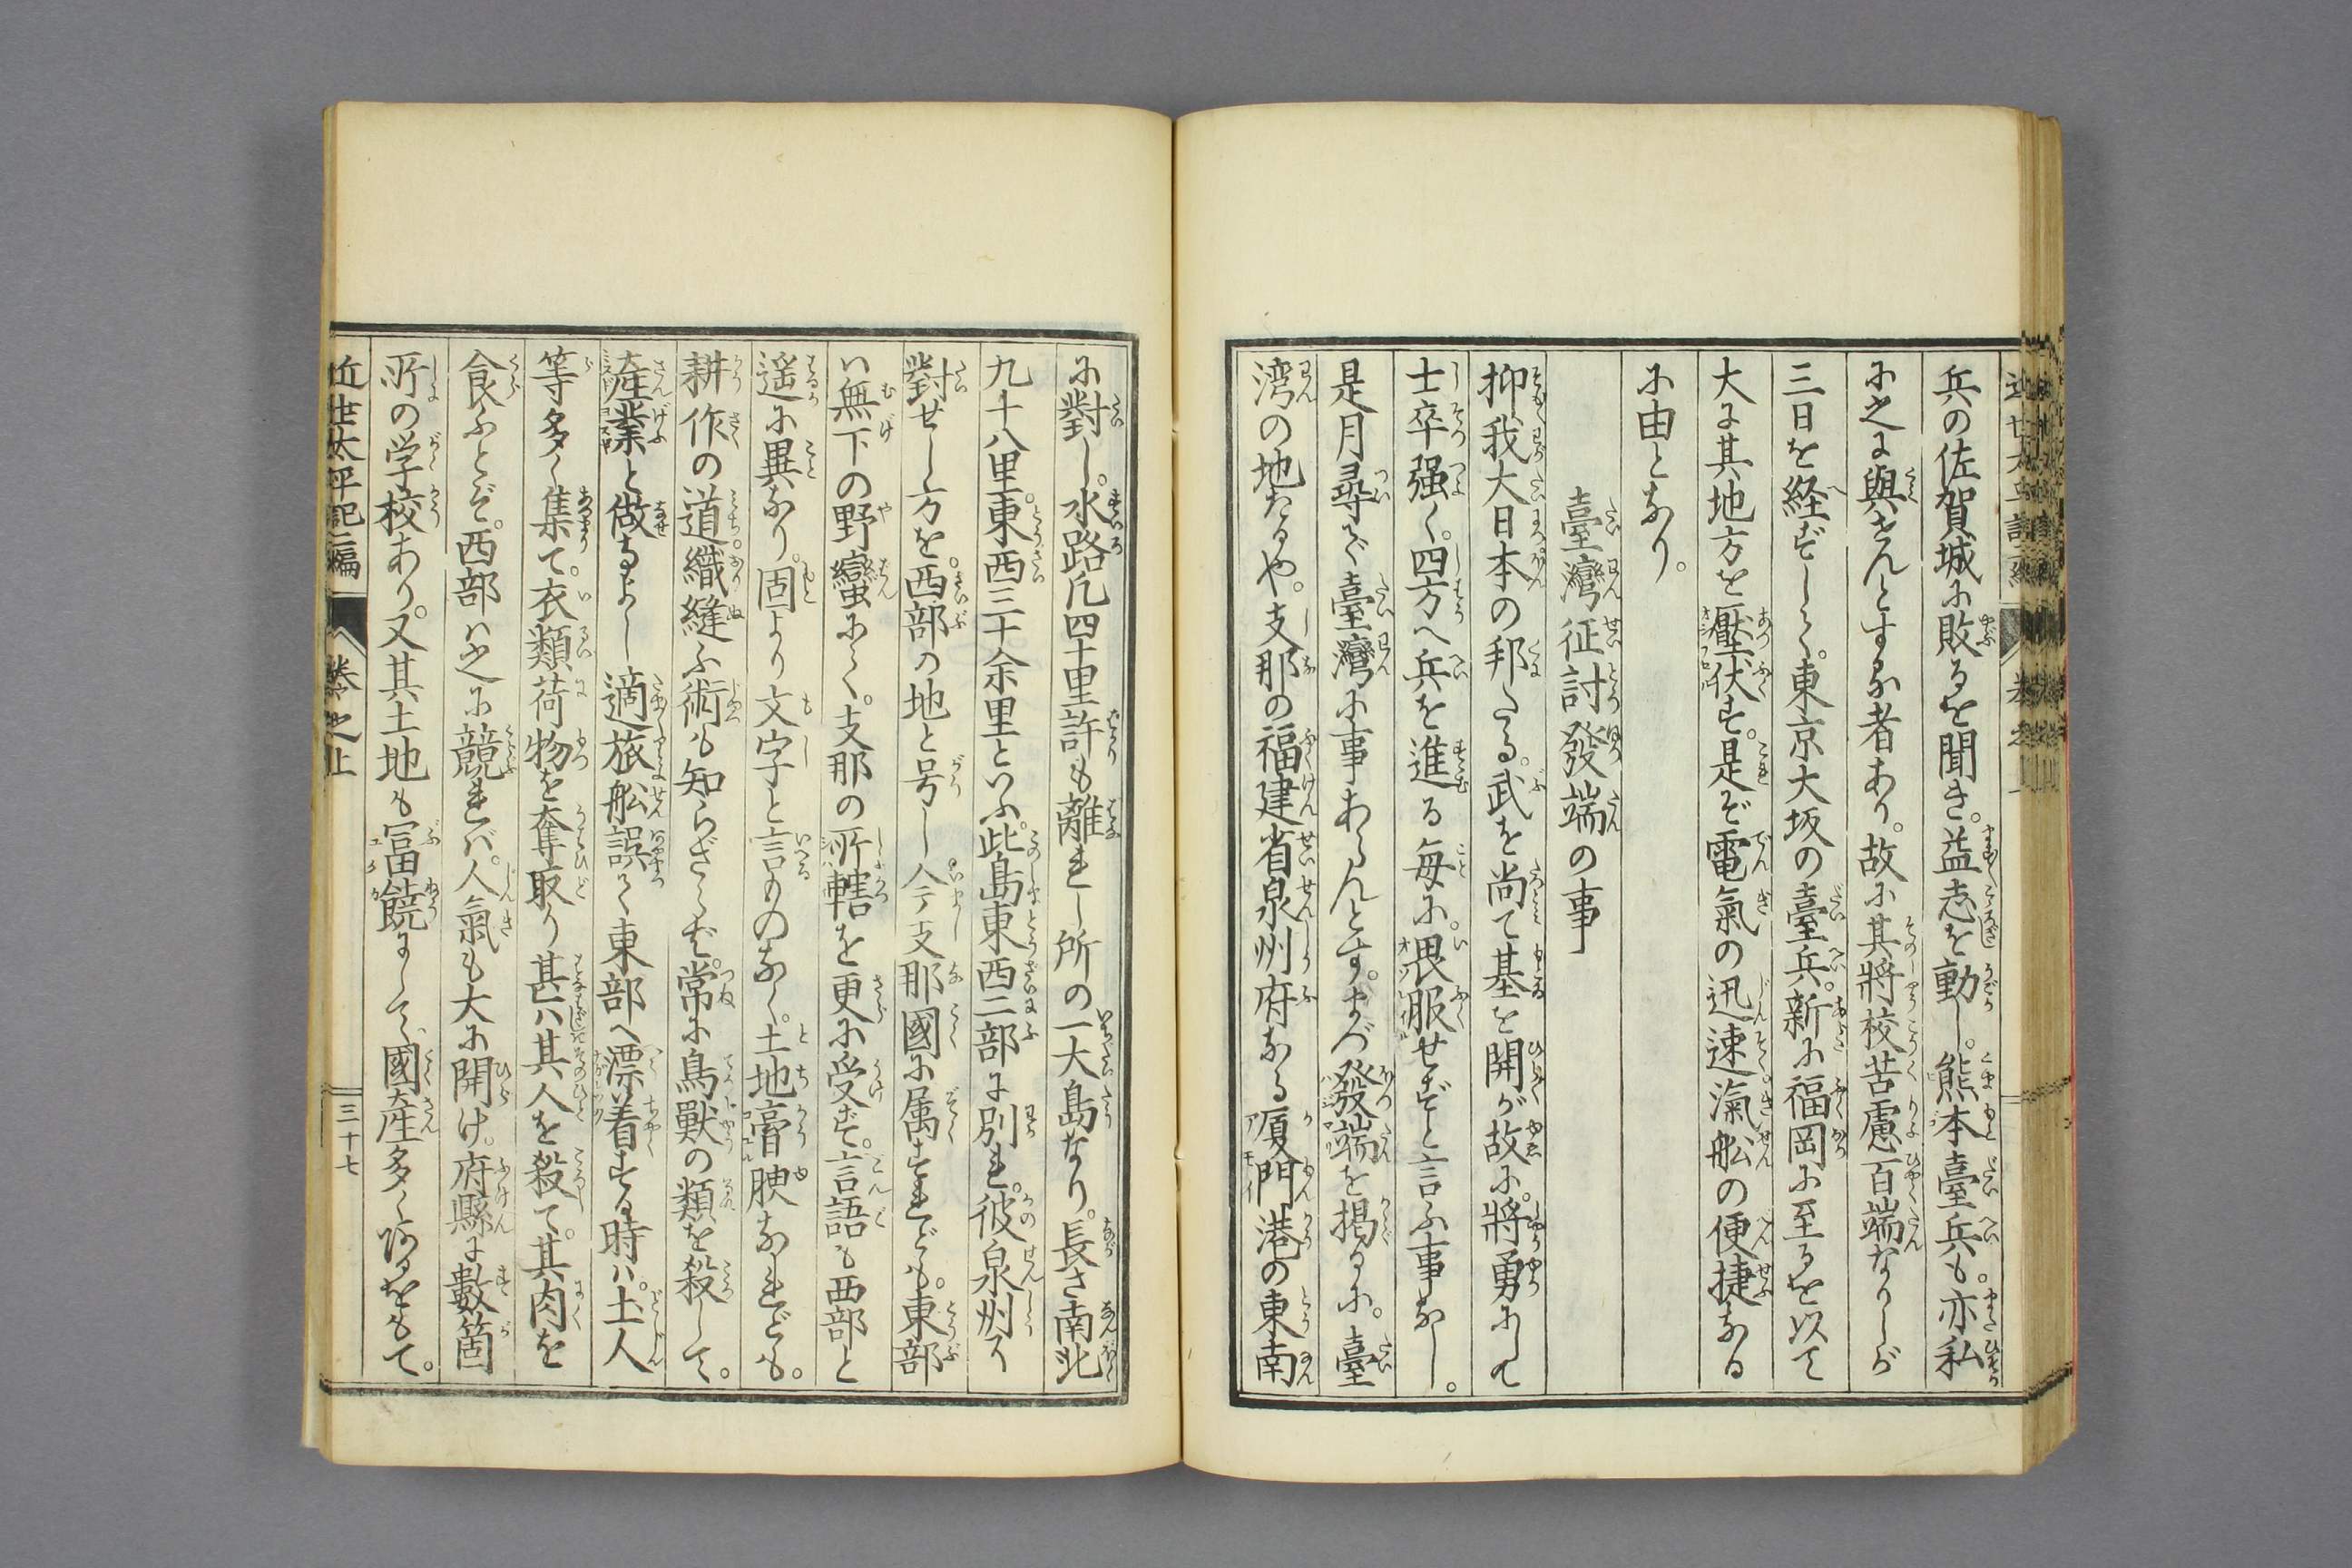 兵の佐賀城に敗るを聞き。益志を動し。熊本臺兵も。亦私
に之に與せんとする者あり。故に其將校苦慮百端なりしが
三日を経ずして。東京大坂の臺兵。新に福岡に至るを以て
大に其地方を壓伏す。是ぞ電氣の迅速滊舩の便捷なる
に由となり。
臺灣征討發端の事
抑我大日本の邦たる。武を尚て基を開が故に。將勇にして
士卒强く。四方へ兵を進る毎に。畏服せずと言ふ事なし。
是月尋で臺灣に事あらんとす。まづ發端を掲るに。臺
湾の地たるや。支那の福建省泉州府なる厦門港の東南
に對し。水路凡四十里許も離れし所の一大島なり。長さ南北
九十八里。東西三十余里といふ。此島東西二部に別れ。彼泉州に
對せし方を。西部の地と号し今支那國に属すれども。東部
ハ無下の野蠻にて。支那の所轄を更に受ず。言語も西部と
遥に異なり。固より文字と言ものなく。土地膏腴なれども。
耕作の道。織縫ふ術も知らざらず。常に鳥獸の類を殺して。
産業と做すよし適旅舩誤て東部へ漂着する時ハ。土人
等多く集て。衣類荷物を奪取り甚ハ其人を殺て。其肉を
食ふとぞ。西部ハ之に競れバ。人氣も大に開け。府縣に數箇
所の学校あり。又其土地も富饒にして、國産多く
をもて。
近世太平記二編
巻之上
三十七